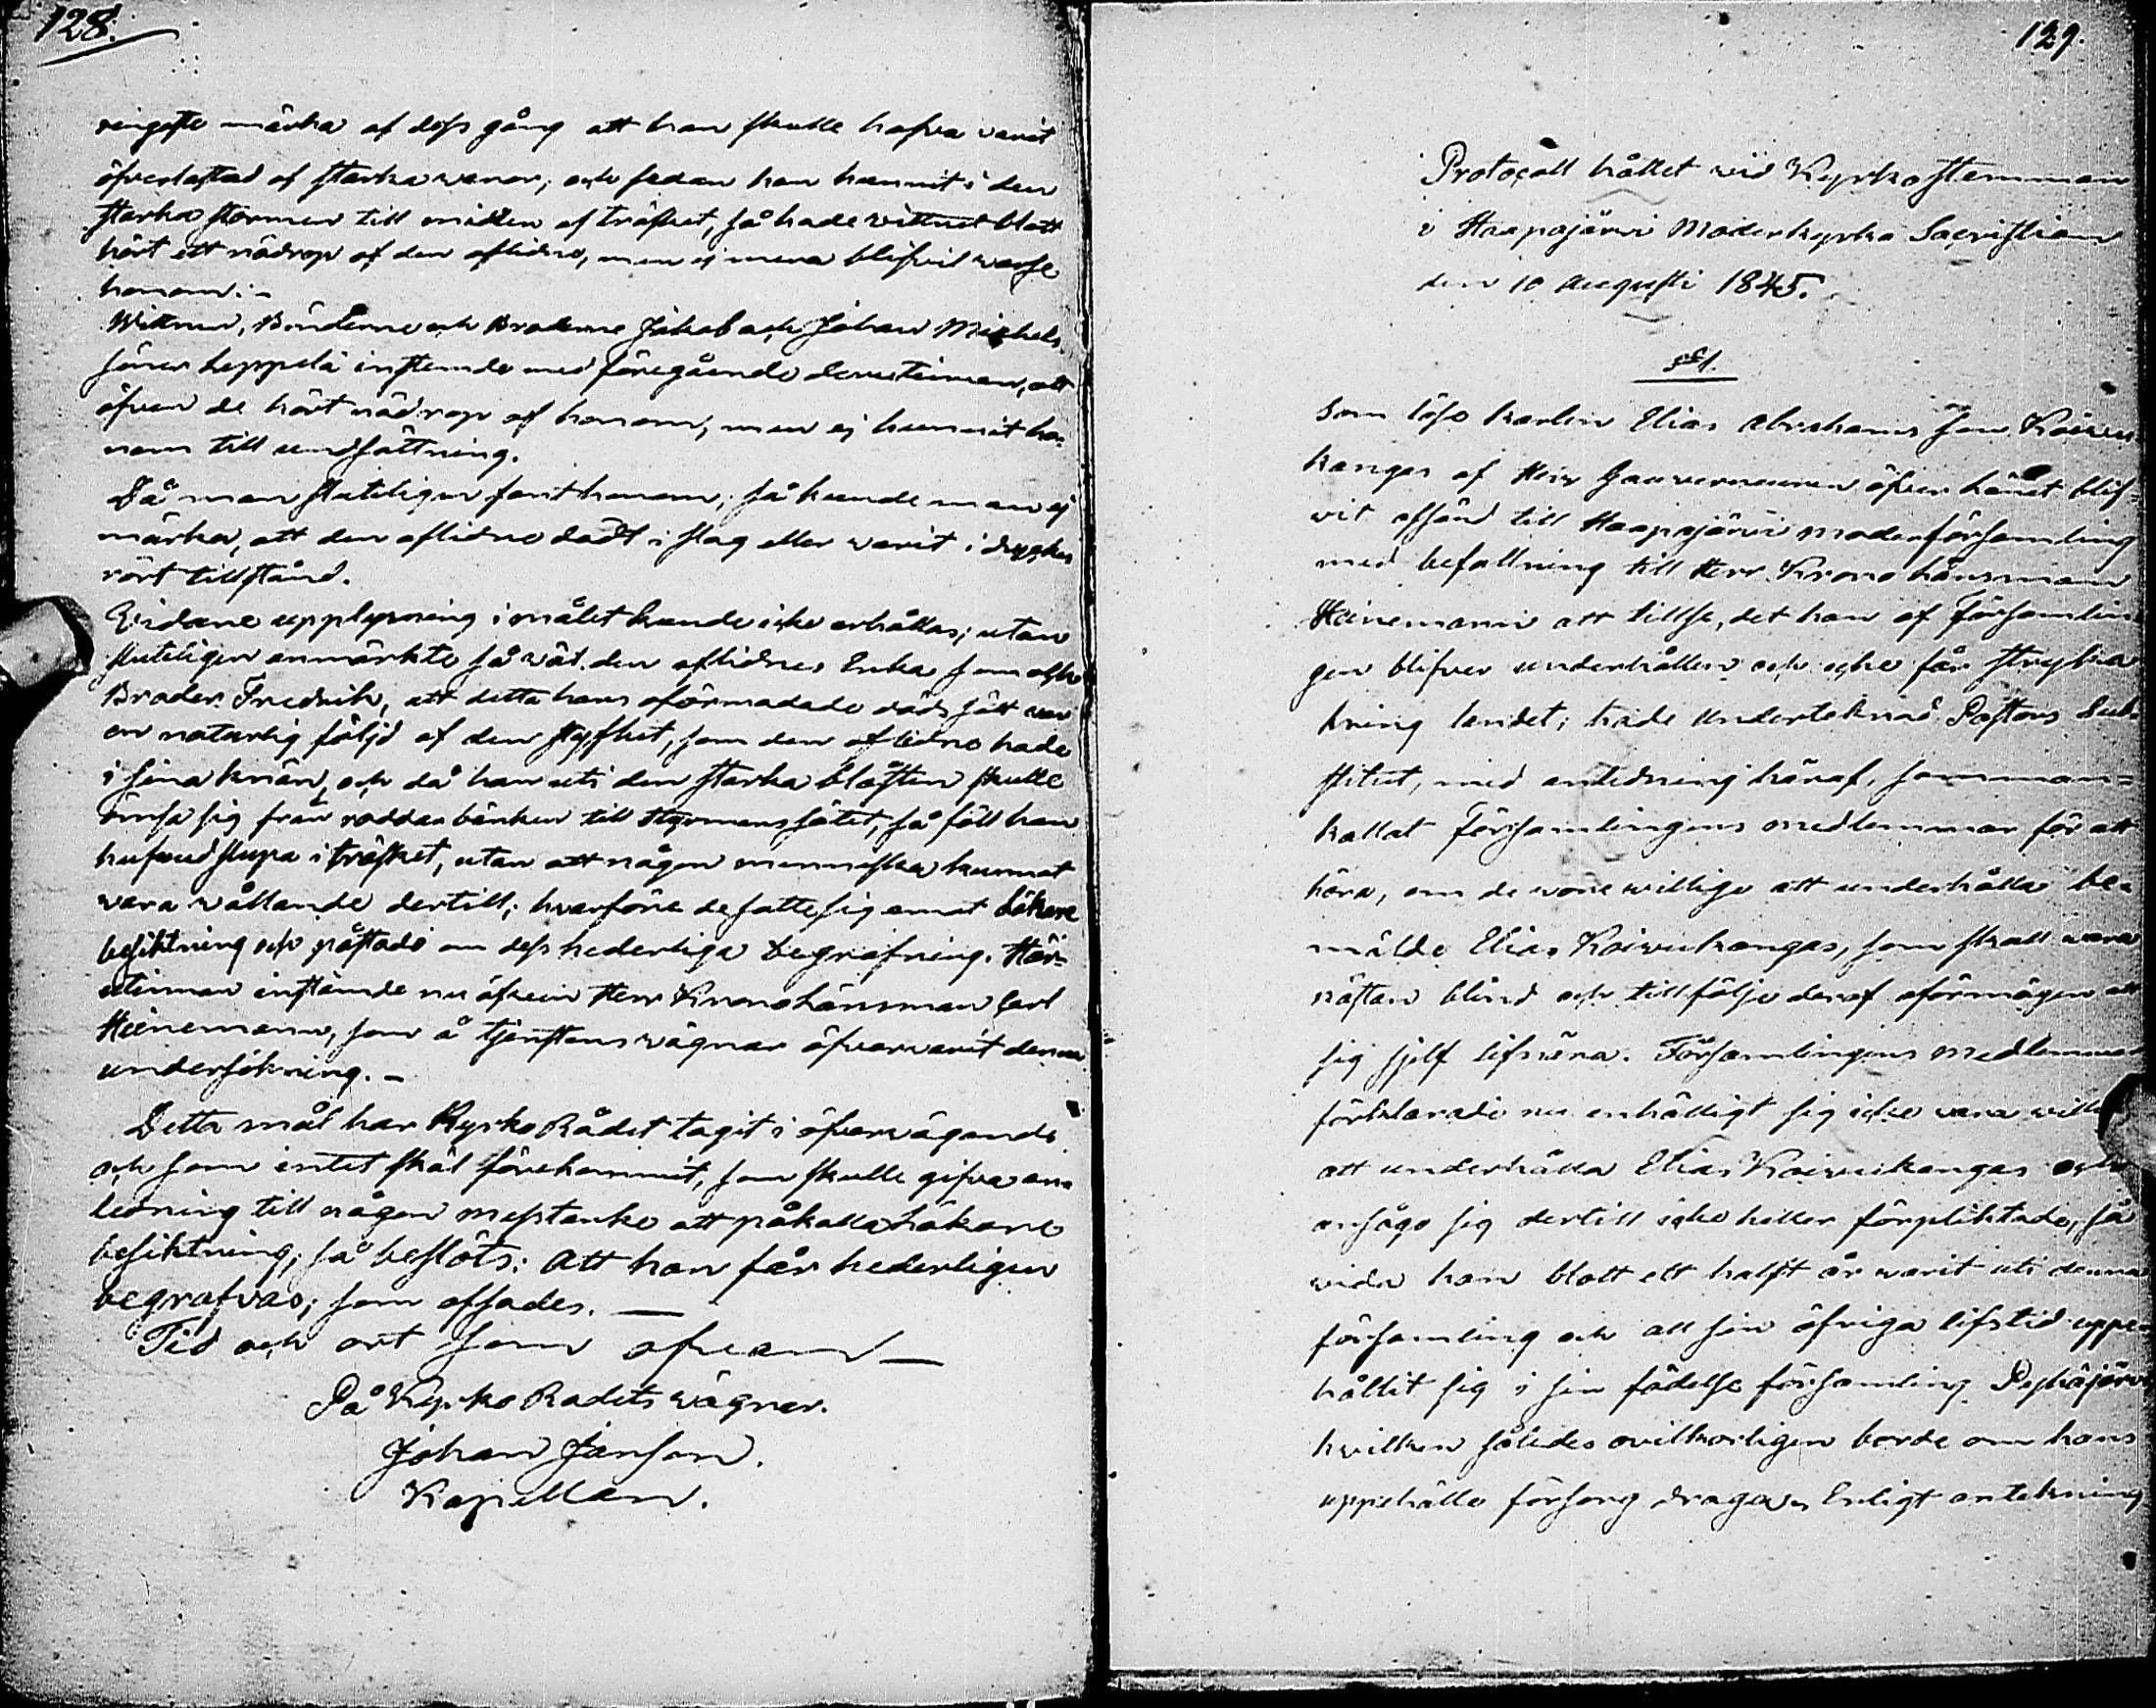 128.
ringaste märka af dess gång att han skulle hafva varit
öfverlastad af starka varor; och sedan han hunnit i den
starka stormen till midten af träsket, så hade vittnet blott
hört ett nödrop af den aflidne, men ej mera blifvit varse
honom:-
Wittnen, Bönderne och Bröderne Jakob och Johan Michels
söner Leppelä instemde med föregående derutinnan, att
äfven de hört nödrop af honom, men ej hunnit ho-
nom till undsättning.
Då man sluteligen fant honom; så kunde man ej
märka, att den aflidne dödt i slag eller warit i dryckes
rört tillstånd.
Vidare upplysning i målet kunde icke erhållas; utan
sluteligen anmärkte så väl den aflidnes Enka som ock
Broder Fredrik, att detta hans oförmodade döds sätt var
en naturlig följd af den styfhet, som den aflidne hade
i sina knän, och då han uti den starka blåsten skulle
ömsa sig från roddar bänken till styrmans sätet, så föll han
hufvudstupa i träsket, utan att någon menniska kunnat
vara vållande dertill; hvarföre de satte sig emot Läkare
besiktning och påstodo om dess hederliga begrafning. Här-
utinnan instämde nu äfven Herr Kronolänsman Carl
Heinemann, som å tjenstens vägnar öfvervarit denna
undersökning.-
Detta mål har Kyrko Rådet tagit i öfvervägande
och som intet skäl förekommit, som skulle gifva an-
ledning till någon misstanke att påkalla Läkare
besiktning; så beslöts: Att han får hederligen
begrafvas; som afsades.—
Tid och ort som ofvan—
På Kyrko Rådets vägnar.
Johan Janson.
Kapellan.
129.
Protocoll hållet wid Kyrkostemman
i Haapajärvi Moderkyrka Sacristian
den 10 Augusti 1845.
§ 1.
Som löse karlen Elias Abrahams son Koivu
kangas af Herr Gouverneuren öfver länet blif-
vit afsänd till Haapajärvi moderförsamling
med befallning till Herr Krono länsman
Heinemann att tillse, det han af församlin
gen blifver underhållen och icke får stryka
kring landet; hade undertecknad Pastors Sub-
stitut, med anledning häraf, samman=
kallat Församlingens medlemmar för att
höra, om de vore willige att underhålla be-
mälde Elias Koivukangas, som skall wara
nästan blind och till följe deraf oförmögen att
sig sjelf lifnära. Församlingens medlemmar
förklarade nu enhälligt sig icke vara wille
att underhålla Elias Koivukangas och
ansågo sig dertill icke heller förpliktade, så
vida han blott ett halft år warit uti denna
församling och all sin öfriga lifstid uppe-
hållit sig i sin födelse församling Pyhäjärvi
hvilken således ovilkorligen borde om hans
uppehälle försorg draga. Enligt antekning